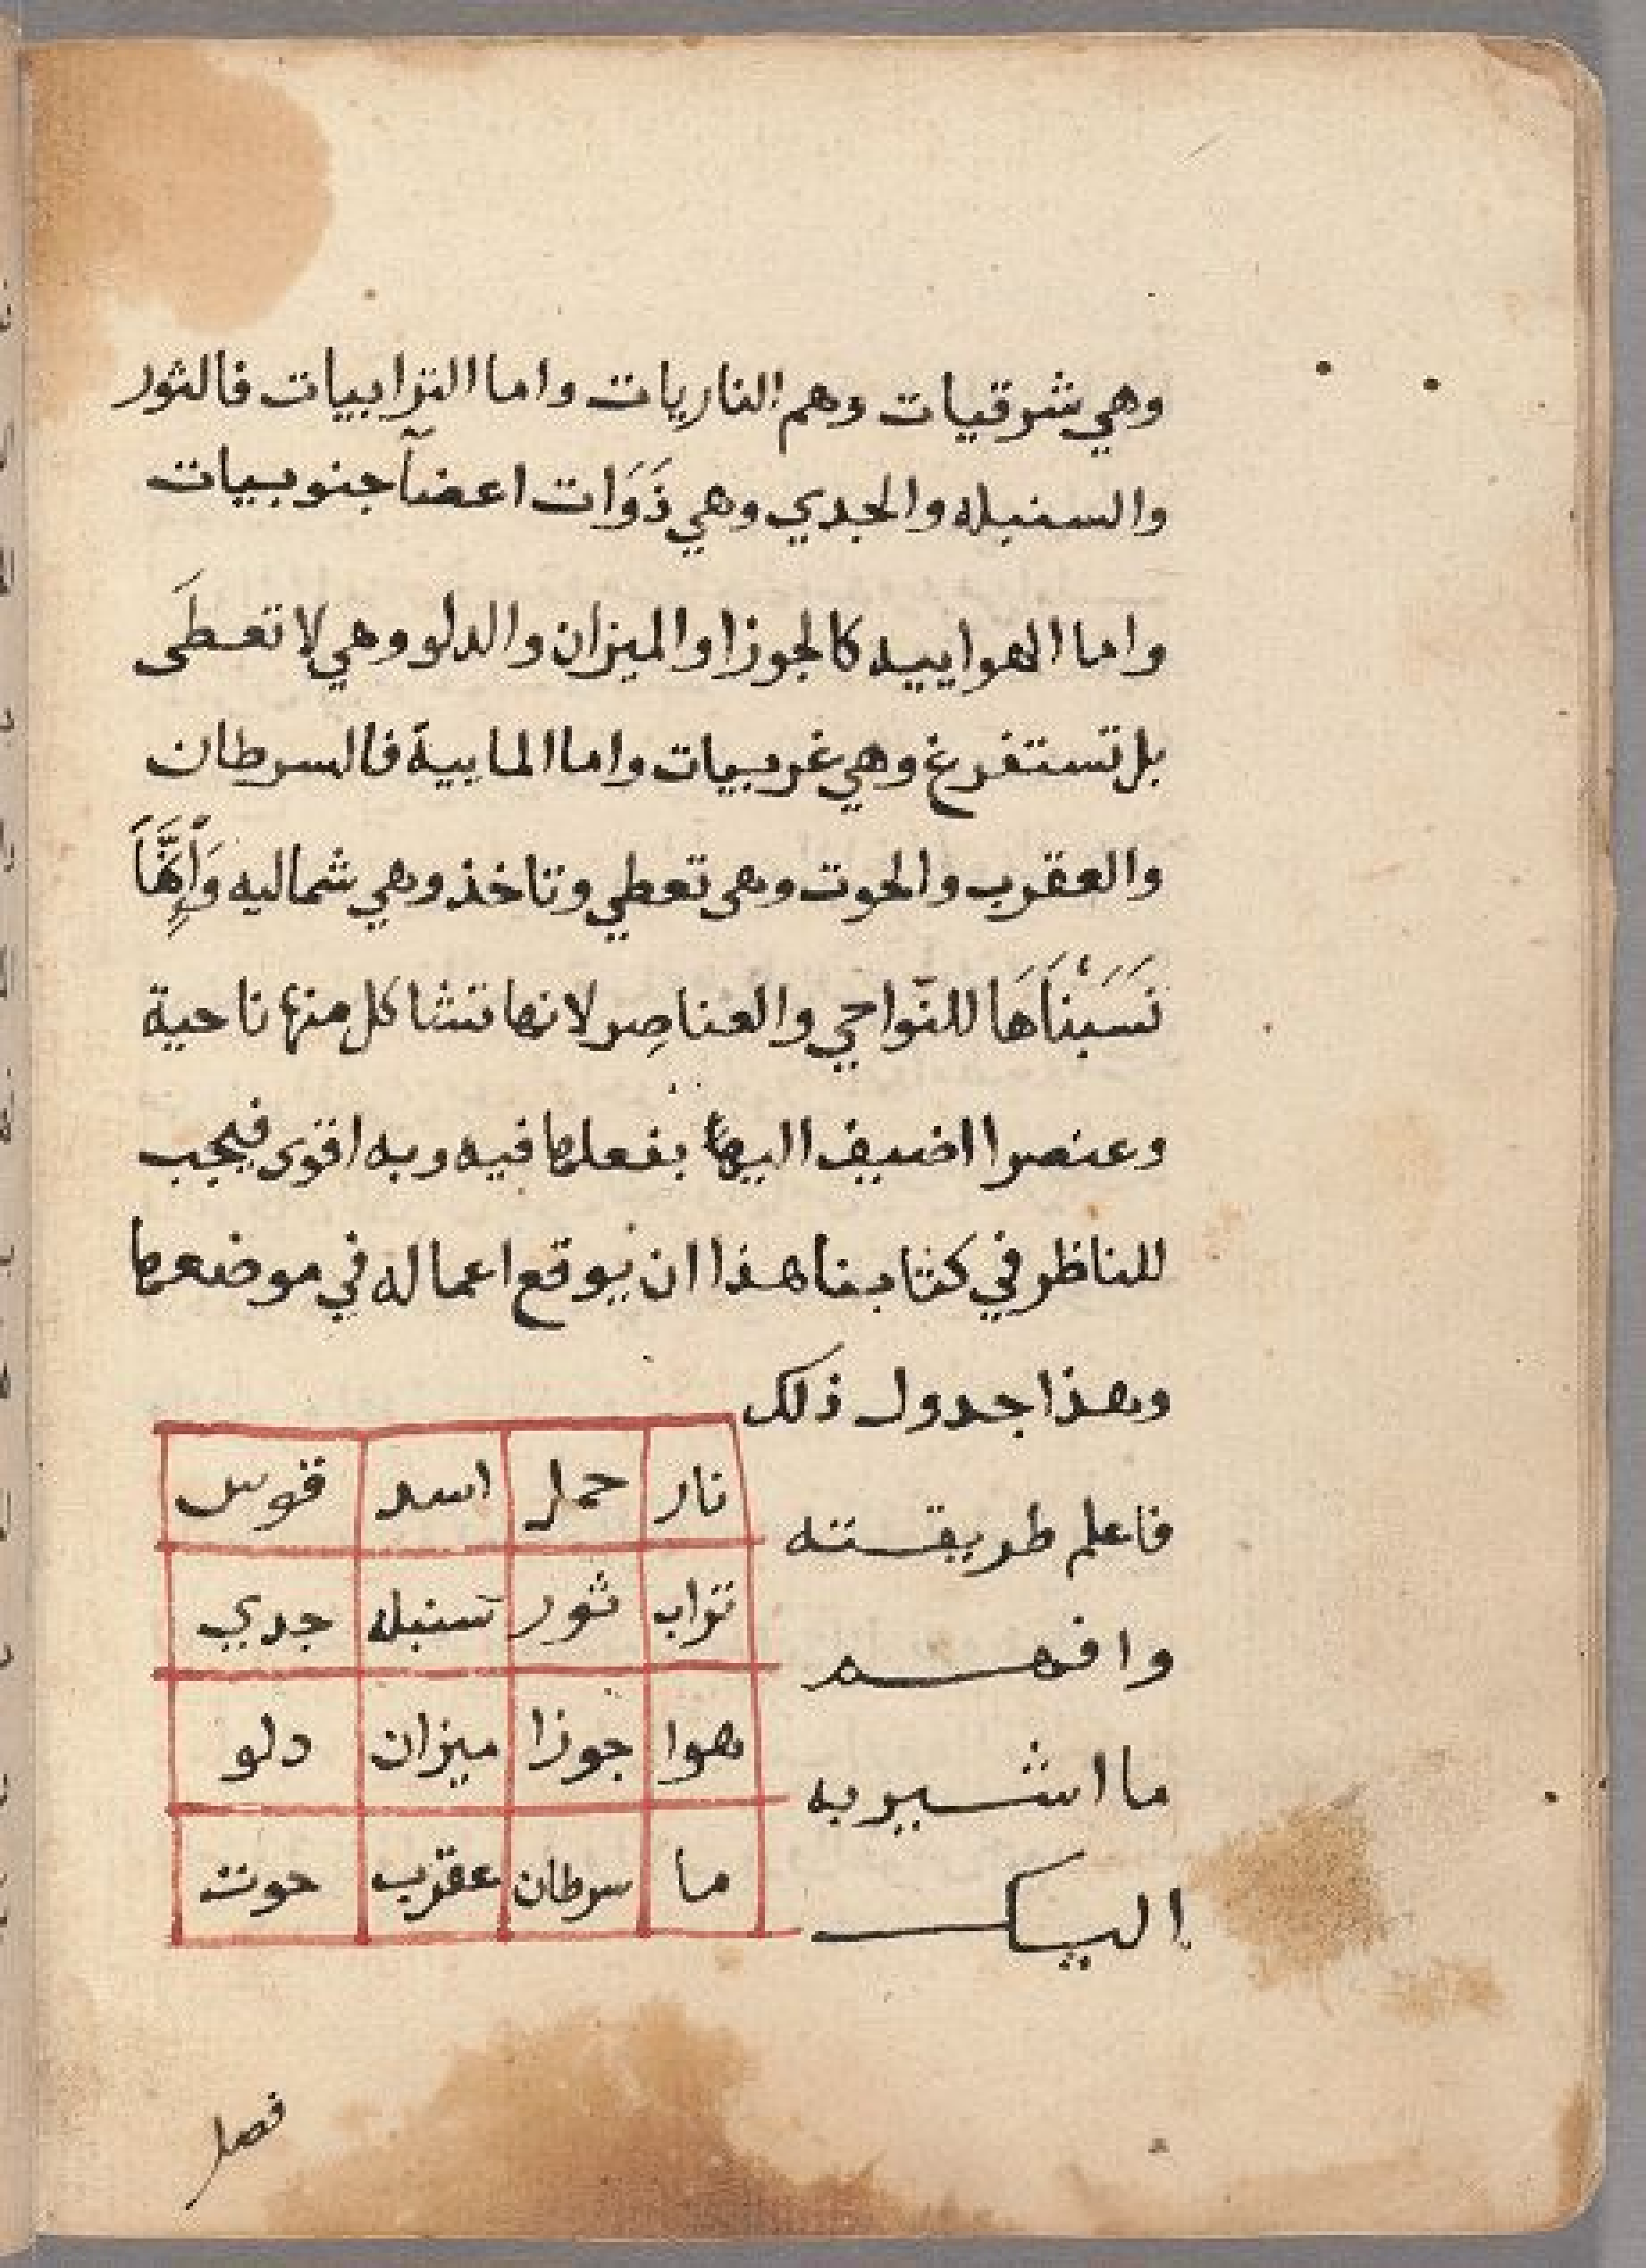 وهي شرقيات وهم الناريات واما الترابيات فالثور
والسنبله والجدي وهي ذَوَات اعضآ جنوبيات
واما الهواييه كالجوزا والميزان والدلو وهي لا تعطَى
بل تستفرغ وهي غربيات واما المابية فالسرطان
والعقرب والحوت وهى تعطي وتاخذ وهي شماليه وَإنَّمَا
نَسَبْنَاهَا للنّواحي والعناصِر لانها تتشاكل منها ناحية
وعنصرا اضيف اليها بفعلها فيه وبه اقوى فيجب
للناظر في كتابنا هذا ان يوقع اعماله في موضعها
وهذا جدول ذلك
نار حمل اسد قوس
فاعلم طريقته
تراب ثور سنبله جدي
وافهم
هوا جوزا ميزان دلو
ما اشير به
ما سرطان عقرب حوت
اليك
فصل